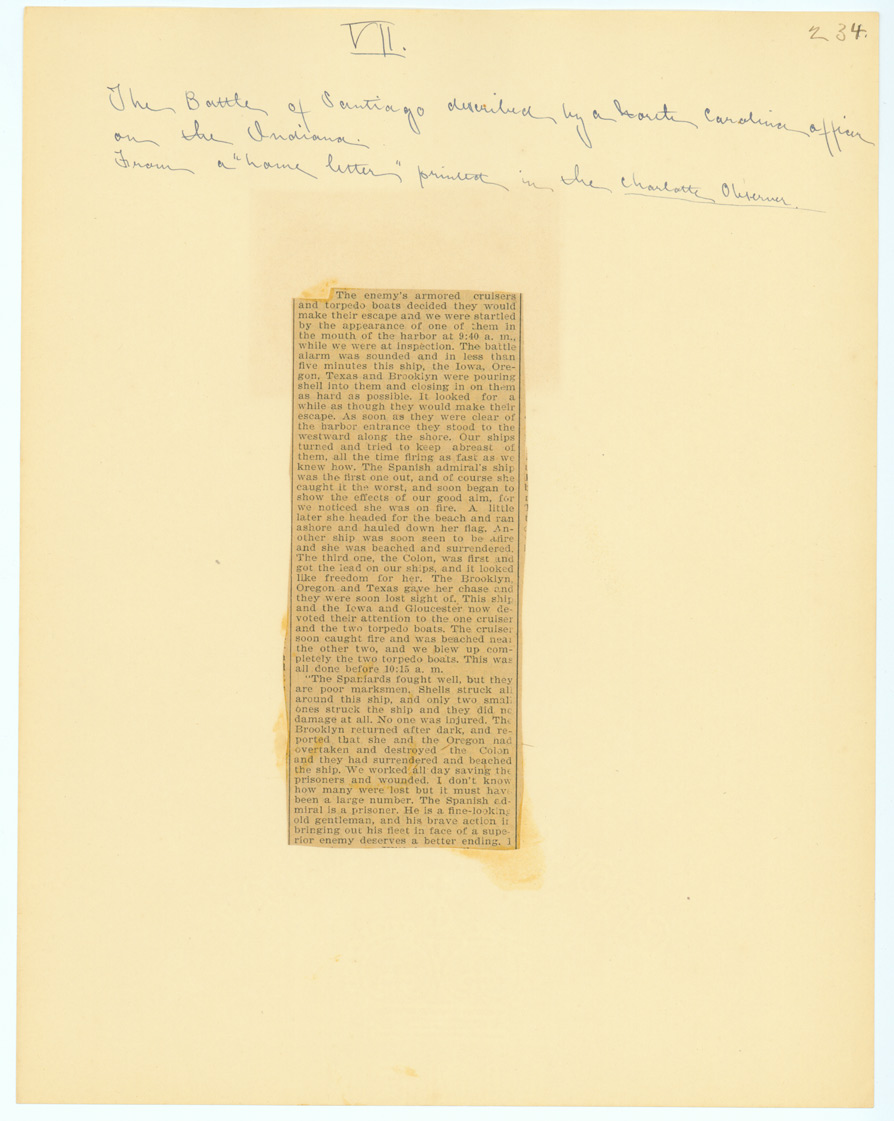 VII.
234.
The Battle of Santiago described by a North Carolina officer
on the Indiana.
From a "home letter" printed in the Charlotte Observer.
The enemy's armored cruisers
and torpedo boats decided they would
make their escape and we were startled
by the appearance of one of them in
the mouth of the harbor at 9:40 a. m.,
while we were at inspection. The battle
alarm was sounded and in less than
five minutes this ship, the Iowa, Ore-
gon, Texas and Brooklyn were pouring
shell into them and closing in on them
as hard as possible. It looked for a
while as though they would make their
escape. As soon as they were clear of
the harbor entrance they stood to the
westward along the shore. Our ships
turned and tried to keep abreast of
them, all the time firing as fast as we
knew how. The Spanish admiral's ship
was the first one out, and of course she
caught it the worst, and soon began to
show the effects of our good aim, for
we noticed she was on fire. A little
later she headed for the beach and ran
ashore and hauled down her flag. An-
other ship was soon seen to be afire
and she was beached and surrendered.
The third one, the Colon, was first and
got the lead on our ships, and it looked
like freedom for her. The Brooklyn,
Oregon and Texas gave her chase and
they were soon lost sight of. This ship
and the Iowa and Gloucester now de-
voted their attention to the one cruiser
and the two torpedo boats. The cruiser
soon caught fire and was beached near
the other two, and we blew up com-
pletely the two torpedo boats. This was
all done before 10:15 a. m.
"The Spaniards fought well, but they
are poor marksmen. Shells struck all
around this ship, and only two small
ones struck the ship and they did no
damage at all. No one was injured. The
Brooklyn returned after dark, and re-
ported that she and the Oregon had
overtaken and destroyed the Colon
and they had surrendered and beached
the ship. We worked all day saving the
prisoners and wounded. I don't know
how many were lost but it must have
been a large number. The Spanish ad-
miral is a prisoner. He is a fine-looking
old gentleman, and his brave action in
bringing out his fleet in face of a supe-
rior enemy deserves a better ending. I